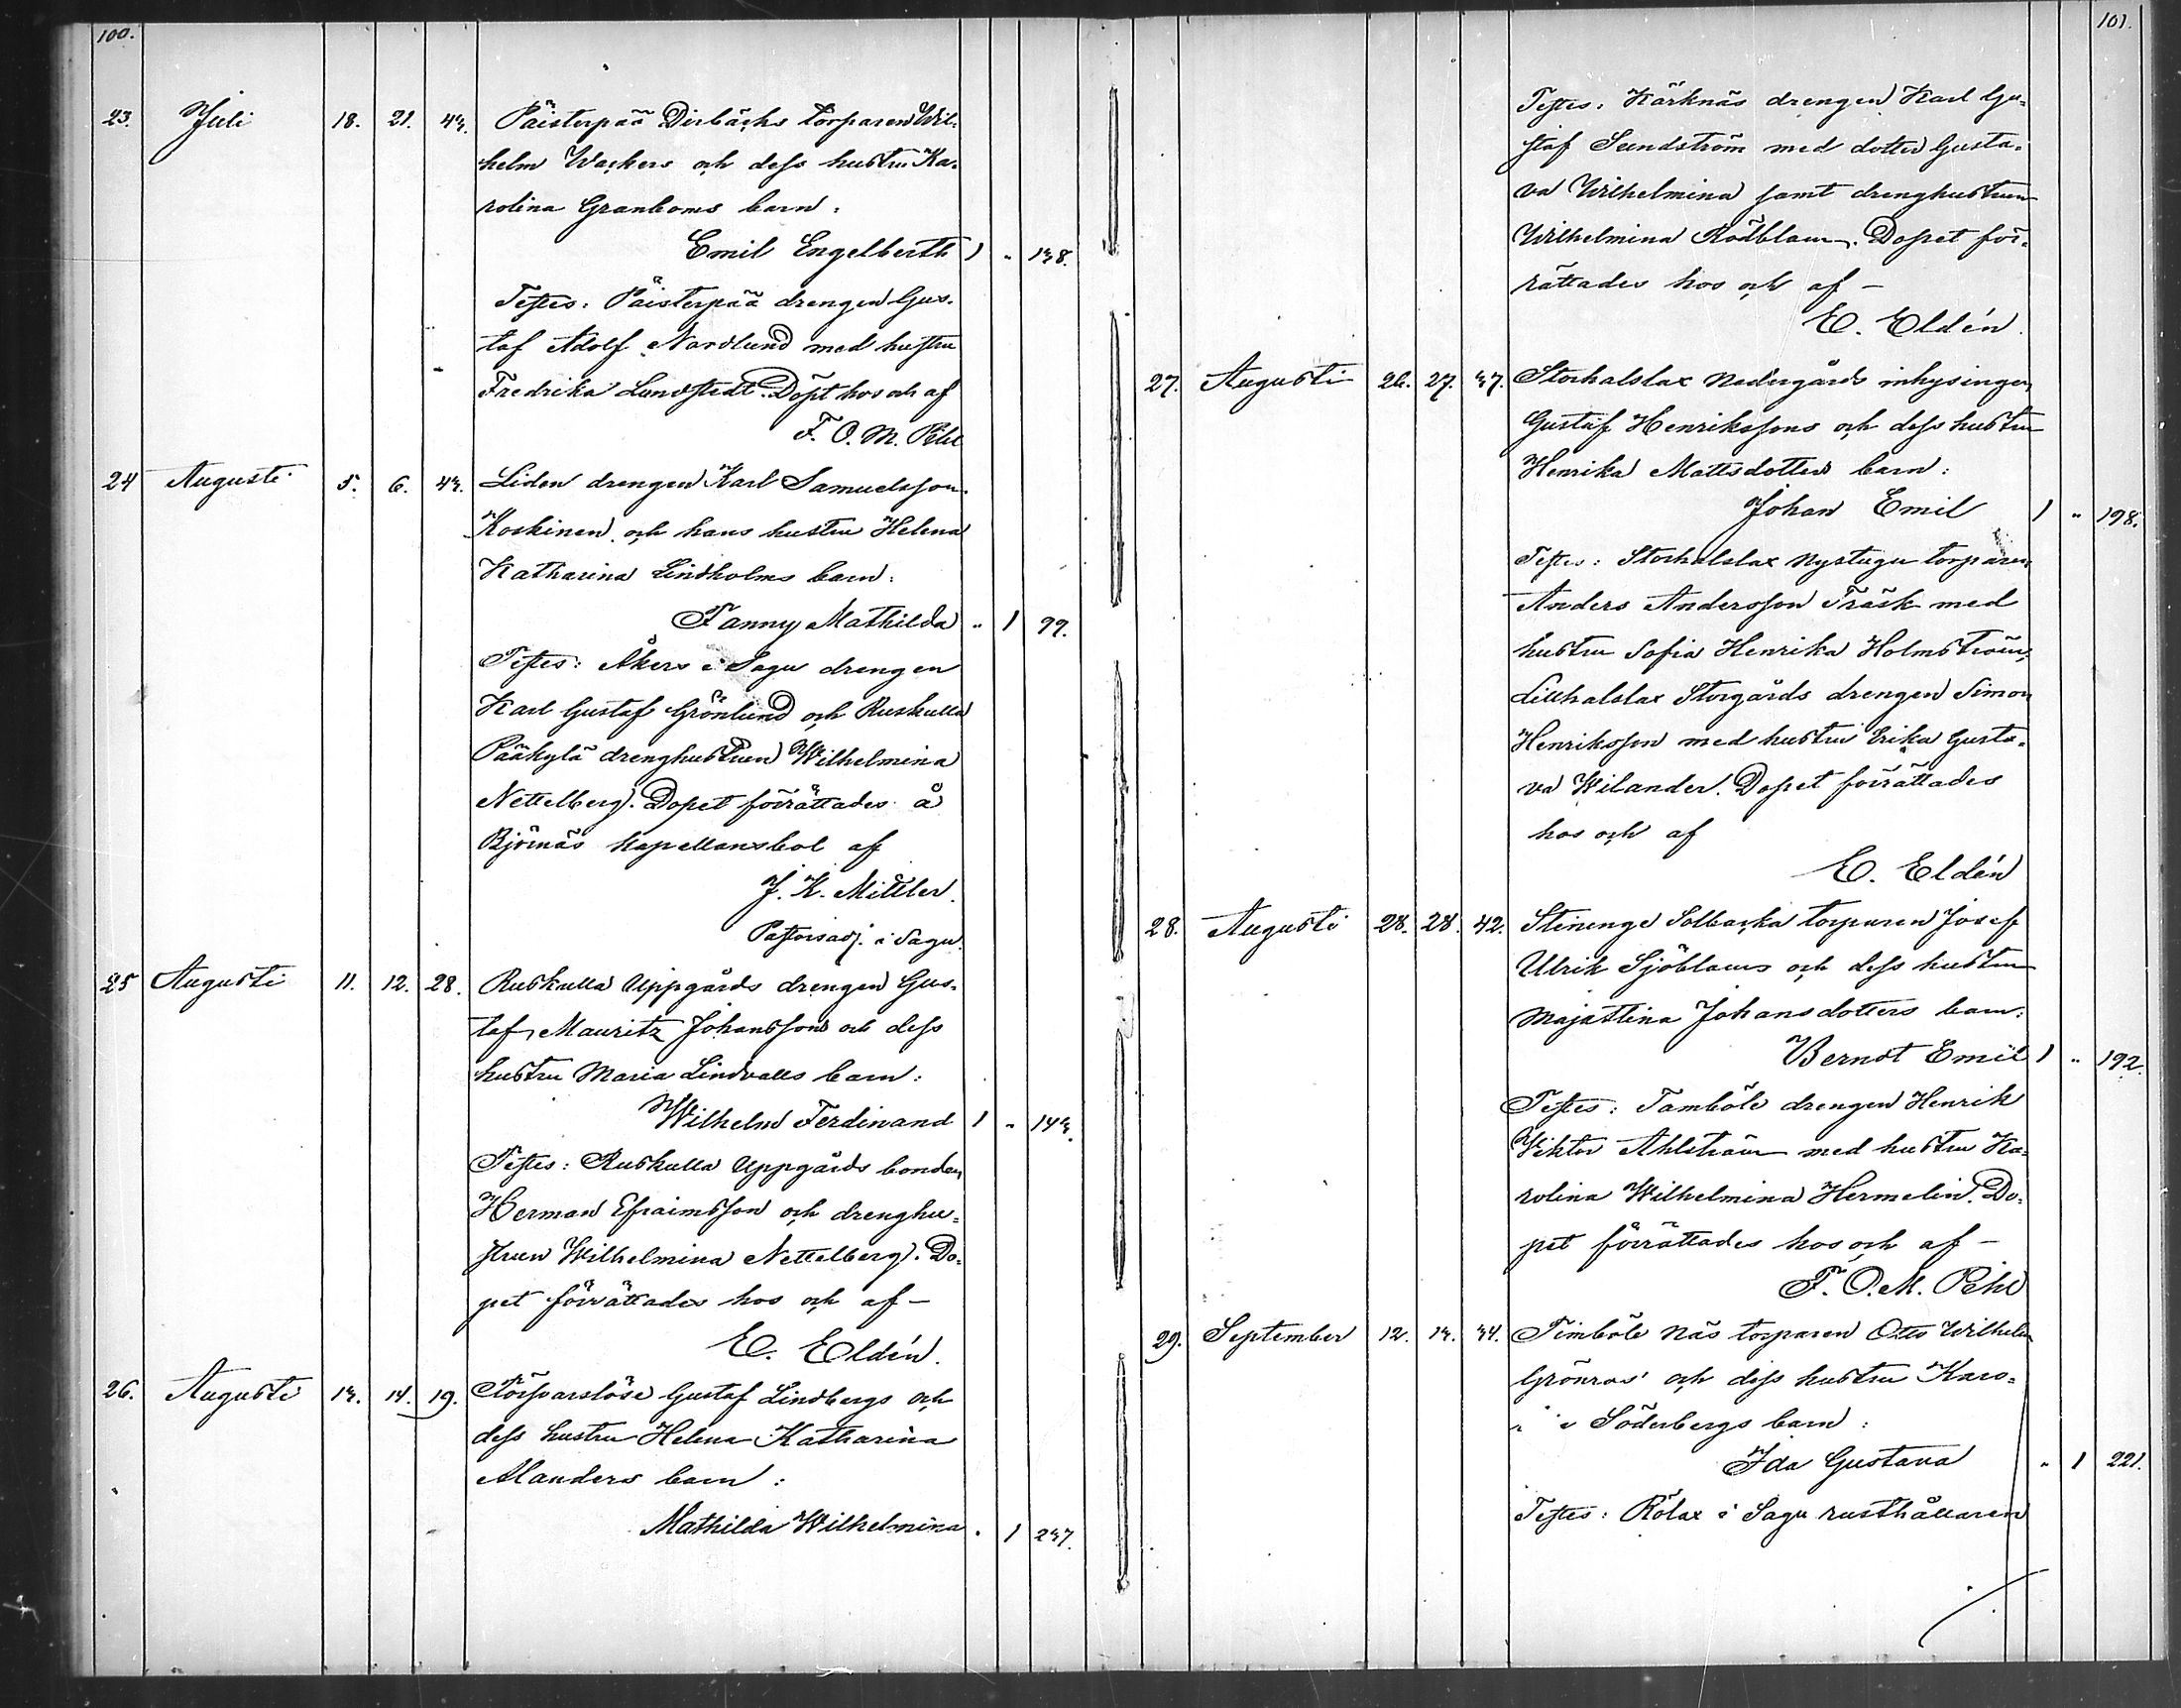 100.
23. Juli 18. 21. 43. Päisterpää Dirbäcks torparen Wil-
helm Wackers och dess hustru Ka-
rolina Granboms barn:
Emil Engelberth 1 " 138.
Testes: Päisterpää drengen Gus-
taf Adolf Nordlund med hustru
Fredrika Lundstedt. Döpt hos och af
F. O. M. Pihl
24 Augusti 5. 6. 43. Liden drengen Karl Samuelsson
Koskinen och hans hustru Helena
Katharina Lindholms barn:
Fanny Mathilda " 1 99.
Testes: Åkers i Sagu drengen
Karl Gustaf Grönlund och Ruskulla
Pääkylä drenghustrun Wilhelmina
Nettelberg. Dopet förrättades å
Björnäs kapellansbol af
J. K. Mittler.
Pastorsadj. i Sagu.
25 Augusti 11. 12. 28. Ruskulla Uppgårds drengen Gus-
taf Mauritz Johanssons och dess
hustru Maria Lindvalls barn:
Wilhelm Ferdinand 1 " 143.
Testes: Ruskulla Uppgårds bonden
Herman Efraimsson och drenghu-
strun Wilhelmina Nettelberg. Do-
pet förrättades hos och af –
E. Eldén.
26. Augusti 13. 14. 19. Törparslöse Gustaf Lindbergs och
dess hustru Helena Katharina
Alanders barn:
Mathilda Wilhelmina " 1 237.
101.
Testes: Kärknäs drengen Karl Gu-
staf Sundström med dotter Gusta-
va Wilhelmina samt drenghustrun
Wilhelmina Rödblom. Dopet för-
rättades hos och af –
E. Eldén.
27. Augusti 26. 27. 37. Storhalslax Nedergårds inhysingen
Gustaf Henrikssons och dess hustru
Henrika Mattsdotters barn:
Johan Emil 1 " 198.
Testes: Storhalslax Nystugu torparen
Anders Andersson Träsk med
hustru Sofia Henrika Holmström,
Lillhalslax Storgårds drengen Simon
Henriksson med hustru Erika Gusta-
va Wilander. Dopet förrättades
hos och af
E. Eldén
28. Augusti 28. 28. 42. Stenenge Solbacka torparen Josef
Ulrik Sjöbloms och dess hustru
Majastina Johansdotters barn:
Berndt Emil 1 " 192.
Testes: Tamböle drengen Henrik
Viktor Ahlström med hustru Ka-
rolina Wilhelmina Hermelin. Do-
pet förrättades hos och af –
F. O. M. Pihl
29. September 12. 13. 34. Timböle Näs torparen Otto Wilhelm
Grönros' och dess hustru Karo-
Söderbergs barn:
Ida Gustava " 1 221.
Testes: Rölax i Sagu rusthållaren